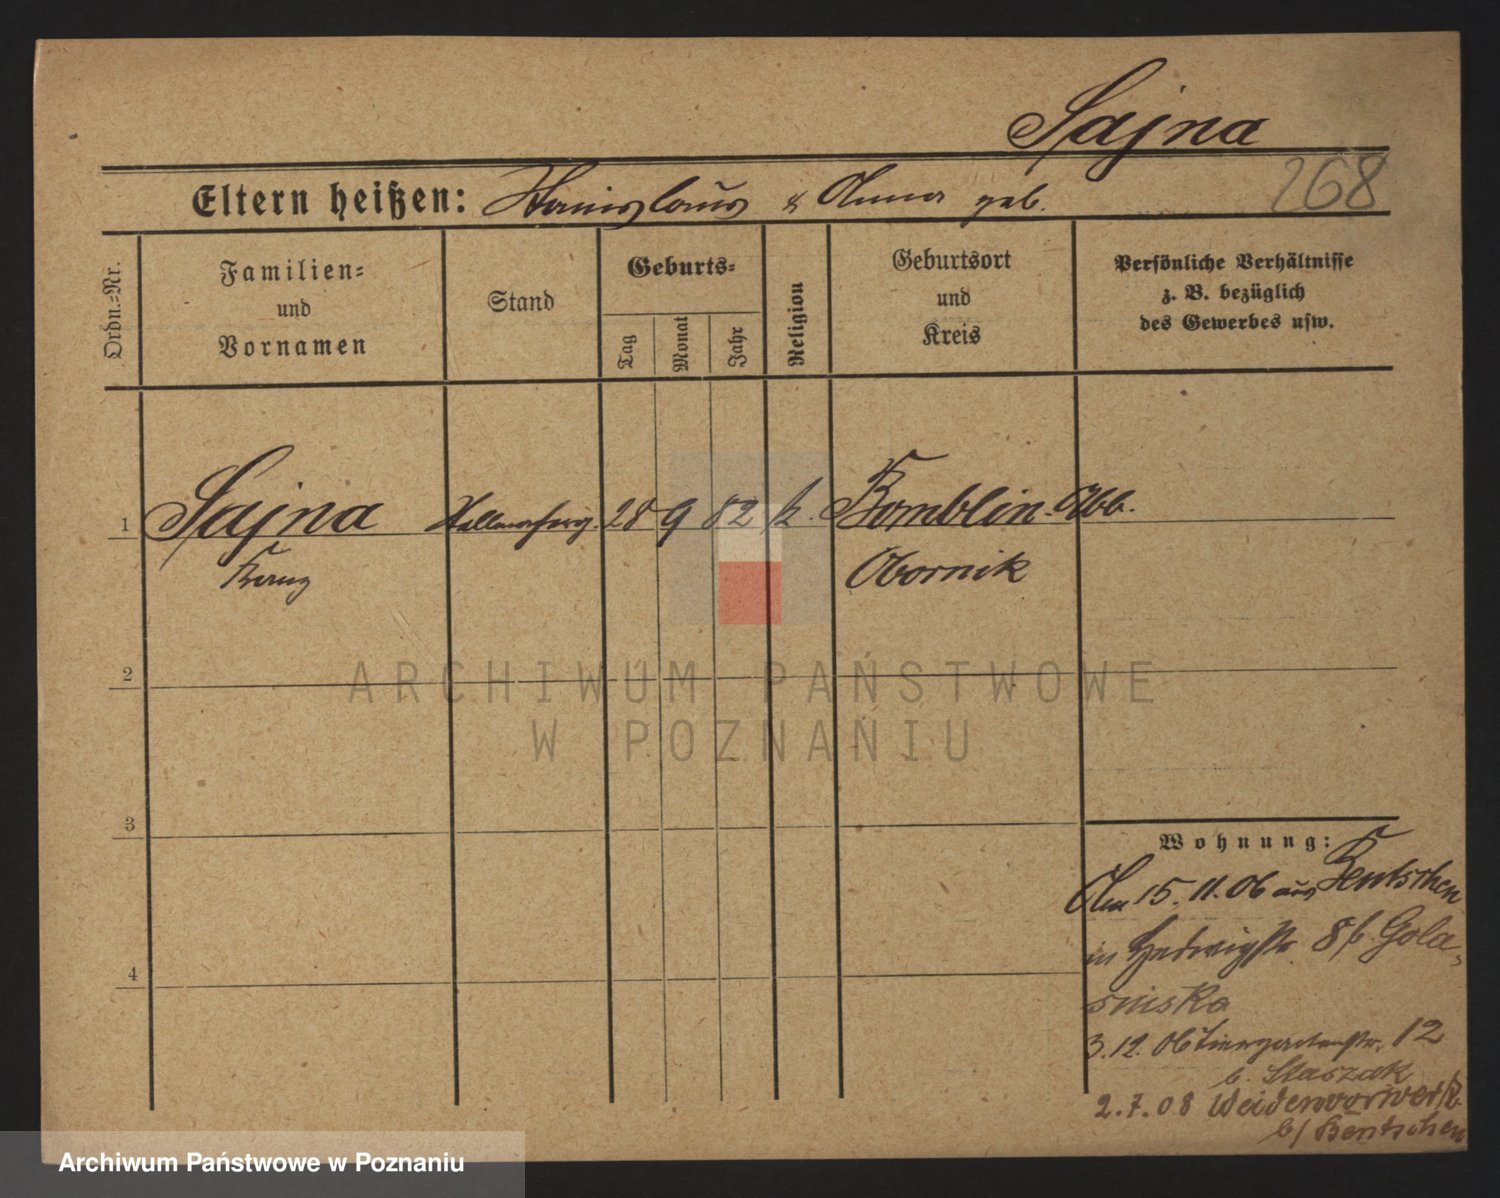 Sajna
268
Eltern heißen: Stanislaus & Anna geb.
Ordn.-Nr.
Familien-
und
Vornamen
Stand
Geburts-
Tag
Monat
Jahr
Religion
Geburtsort
und
Kreis
Persönliche Verhältnisse
z. B. bezüglich
des Gewerbes usw.
1 Sajna 28 9 82 k. Bomblin
Franz Obornik
2
3
4
Wohnung:
Am 15. 11. 06 aus Bentschen
in Hedwigstr. 8 b. Gola-
sinska
3. 12. 06 Tiergartenstr. 12
b. Staszak
2. 7. 08 Weidenvorwerk
b/ Bentschen
ARCHIWUM PAŃSTWOWE
W POZNANIU
Archiwum Państwowe w Poznaniu